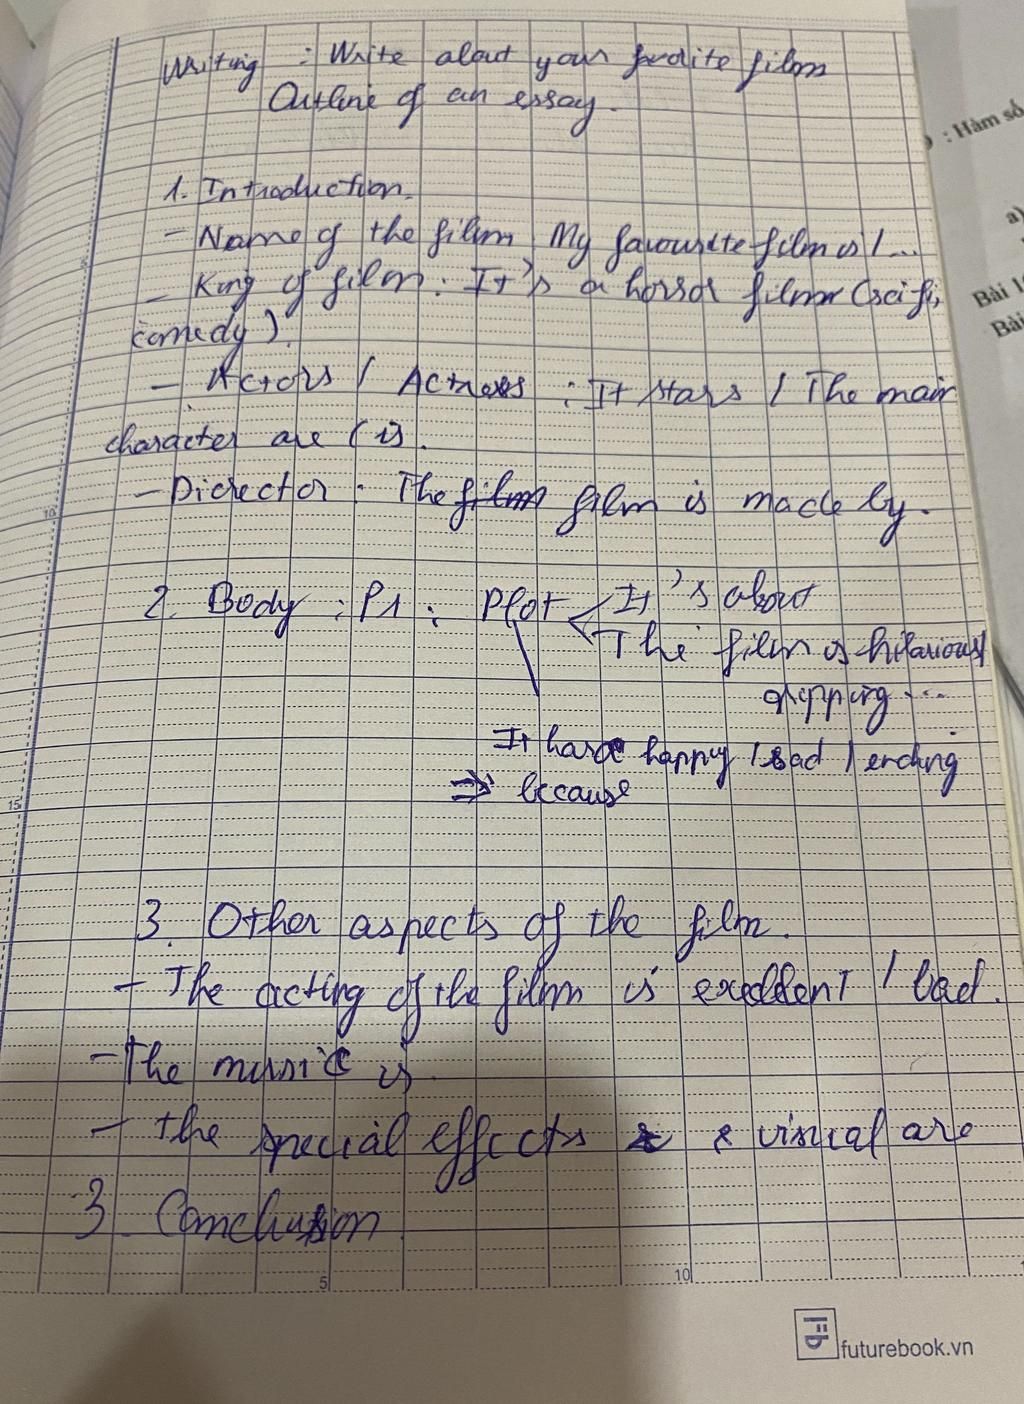 Writing : Write about your favorite film
Outline of an essay.
1. Introduction.
- Name of the film My favourite film is / ...
- King of film : It's a horror film (sci fi,
comedy).
- Actors / Actress : It stars / The main
character are (is.
- Director . The film film is made by.
2. Body : P1 : Plot < It's about
The film is hilarious /
gripping ...
It has a happy / sad / ending
=> because
3. Other aspects of the film.
- The acting of the film is excellent / bad.
- The music is
- the special effects & visual are
3. Conclusion
5
10
15
10
5
: Hàm số
a)
Bài 1
Bài
futurebook.vn